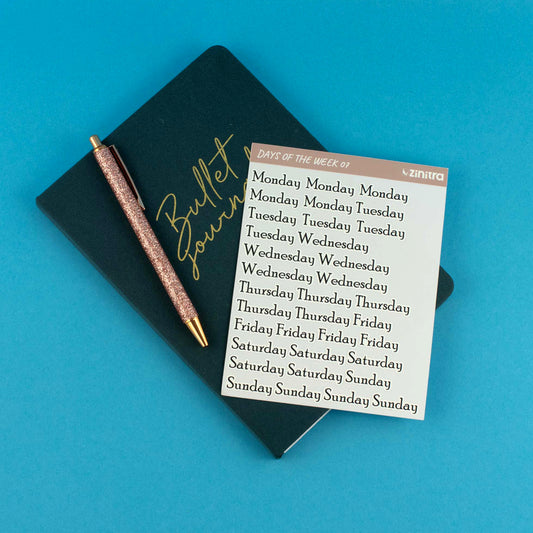 Bullet
DAYS OF THE WEEK 07
zinitra
Monday Monday Monday
Monday Monday Tuesday
Tuesday Tuesday Tuesday
Tuesday Wednesday
Wednesday Wednesday
Wednesday Wednesday
Thursday Thursday Thursday
Thursday Thursday Friday
Friday Friday Friday Friday
Saturday Saturday Saturday
Saturday Saturday Sunday
Sunday Sunday Sunday Sunday